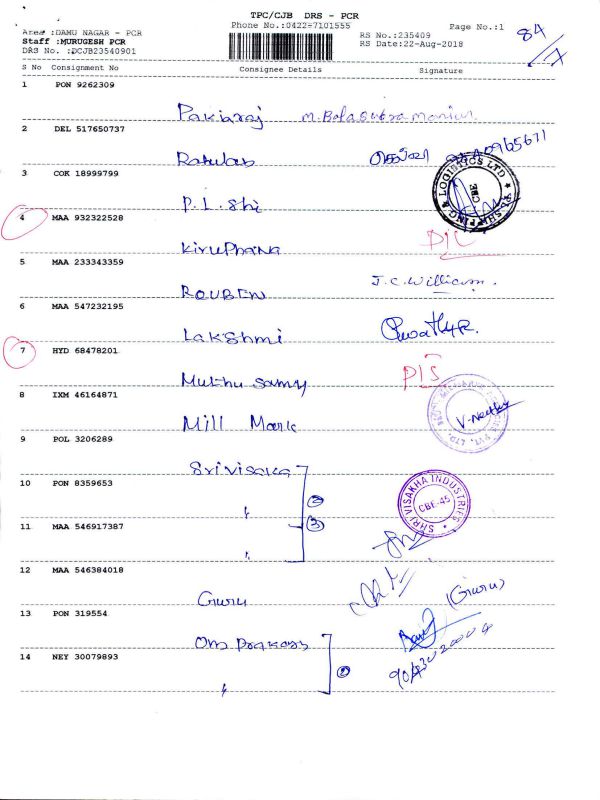 TPC/CJB DRS - PCR
Phone No.:0422-7101555
Page No.:1
84/7
Area :DAMU NAGAR - PCR
RS No.:235409
Staff :MURUGESH PCR
RS Date:22-Aug-2018
DRS No. :DCJB23540901
S No Consignment No Consignee Details Signature
1 PON 9262309
Pakiaraj M. Balasubramanian
2 DEL 517650737
3 COK 18999799
P.L. Shi
PL SHIPPING & LOGISTICS LTD
CBE
4 MAA 932322528
Kiruphana
5 MAA 233343359
ROUBEN J.C. William.
6 MAA 547232195
Lakshmi SwathyR.
7 HYD 68478201
Muthu Samy
8 IXM 46164871
Mill Mark V. Neethu
9 POL 3206289
Srivisaka
10 PON 8359653
②
SHRI VISAKHA INDUSTRIES
CBE-45
11 MAA 546917387
③
12 MAA 546384018
Guru (Guru)
13 PON 319554
Om Prakash
14 NEY 30079893
②